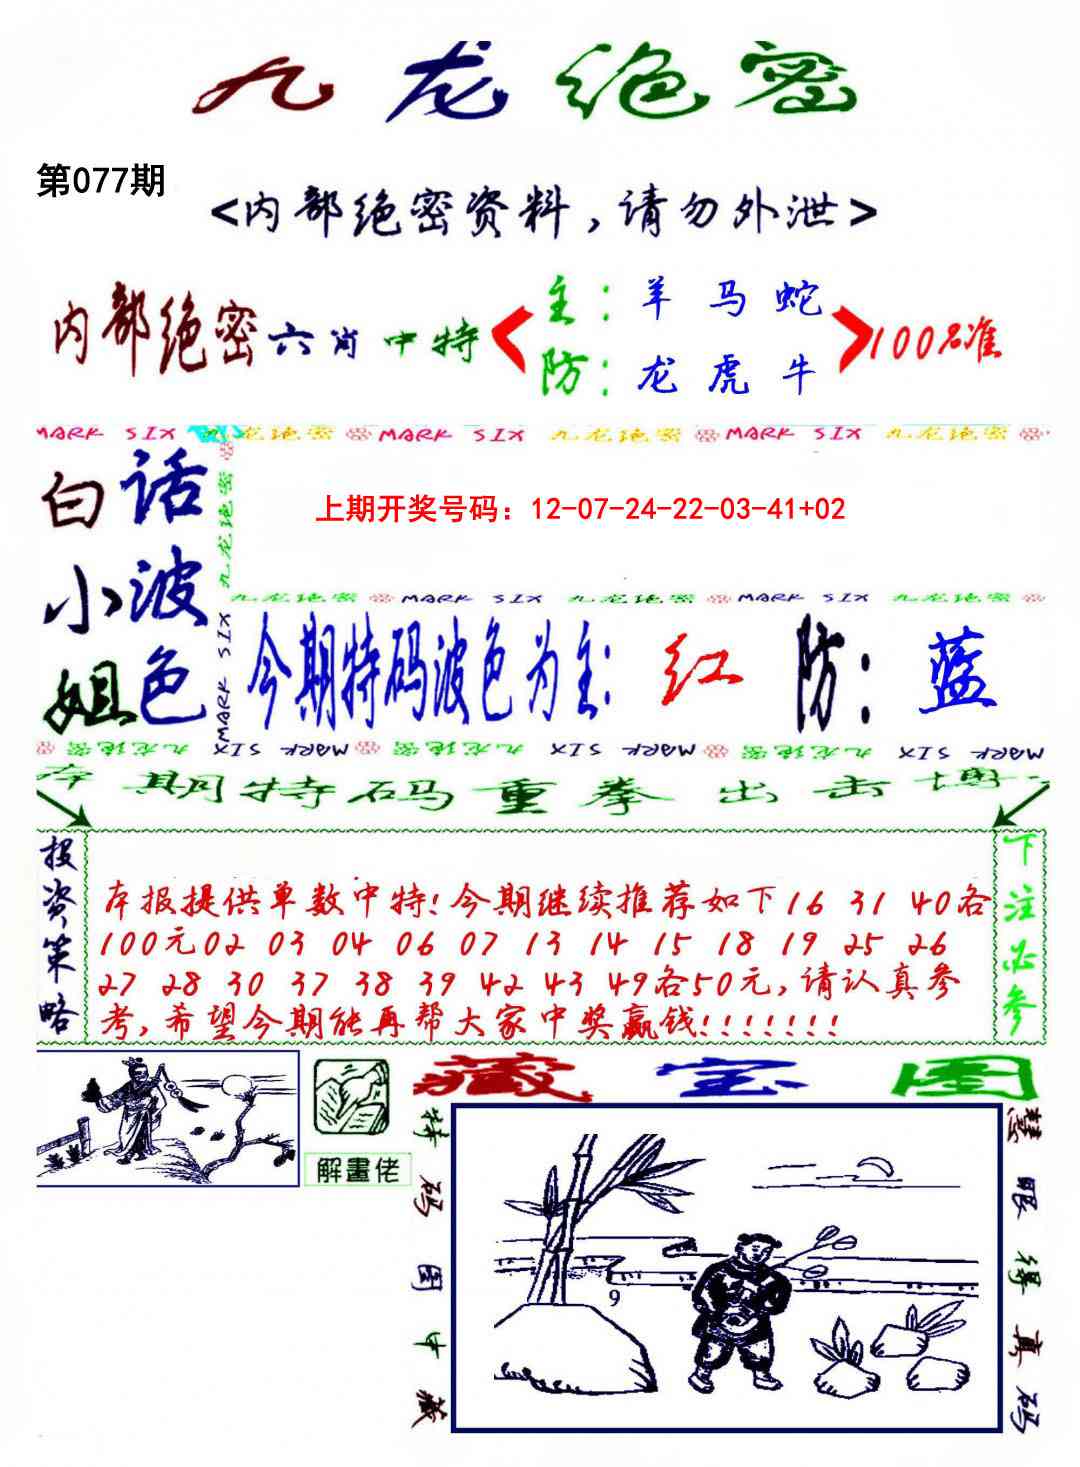 九龙绝密
第077期
<内部绝密资料,请勿外泄>
内部绝密六肖中特
主:羊马蛇
防:龙虎牛
100%准
MARK SIX 九龙绝密 MARK SIX 九龙绝密 MARK SIX 九龙绝密
白话
小波
姐色
九龙绝密
MARK SIX
上期开奖号码：12-07-24-22-03-41+02
九龙绝密 MARK SIX 九龙绝密 MARK SIX 九龙绝密
今期特码波色为主:红 防:蓝
九龙绝密 MARK SIX 九龙绝密 MARK SIX 九龙绝密 MARK SIX
本期特码重拳出击博
投资策略
本报提供单数中特!今期继续推荐如下16 31 40各
100元02 03 04 06 07 13 14 15 18 19 25 26
27 28 30 37 38 39 42 43 49各50元,请认真参
考,希望今期能再帮大家中奖赢钱!!!!!!!
下注必参
解畫佬
藏宝图
特码图中藏
9
慧眼得真码